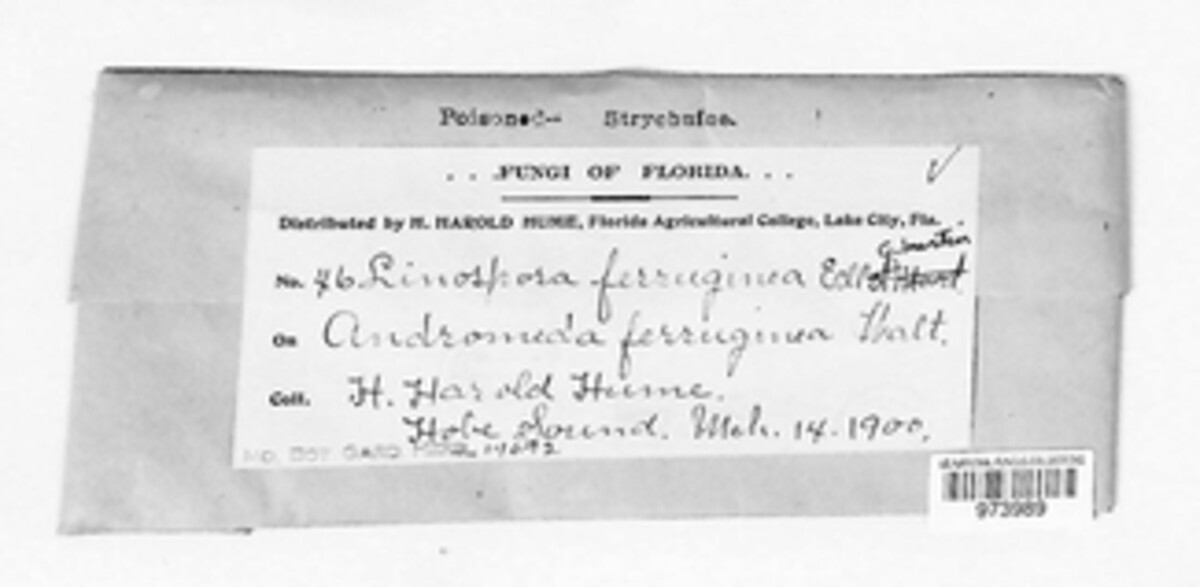 Poisoned-- Strychnine.
. . .FUNGI OF FLORIDA. . .
Distributed by H. HAROLD HUME, Florida Agricultural College, Lake City, Fla.
G. Martin
No. 46. Linospora ferruginea Ell &
On Andromeda ferruginea Walt.
Coll. H. Harold Hume.
Hobe Sound. Mch. 14. 1900.
MO. BOT GARD HERB.
973989